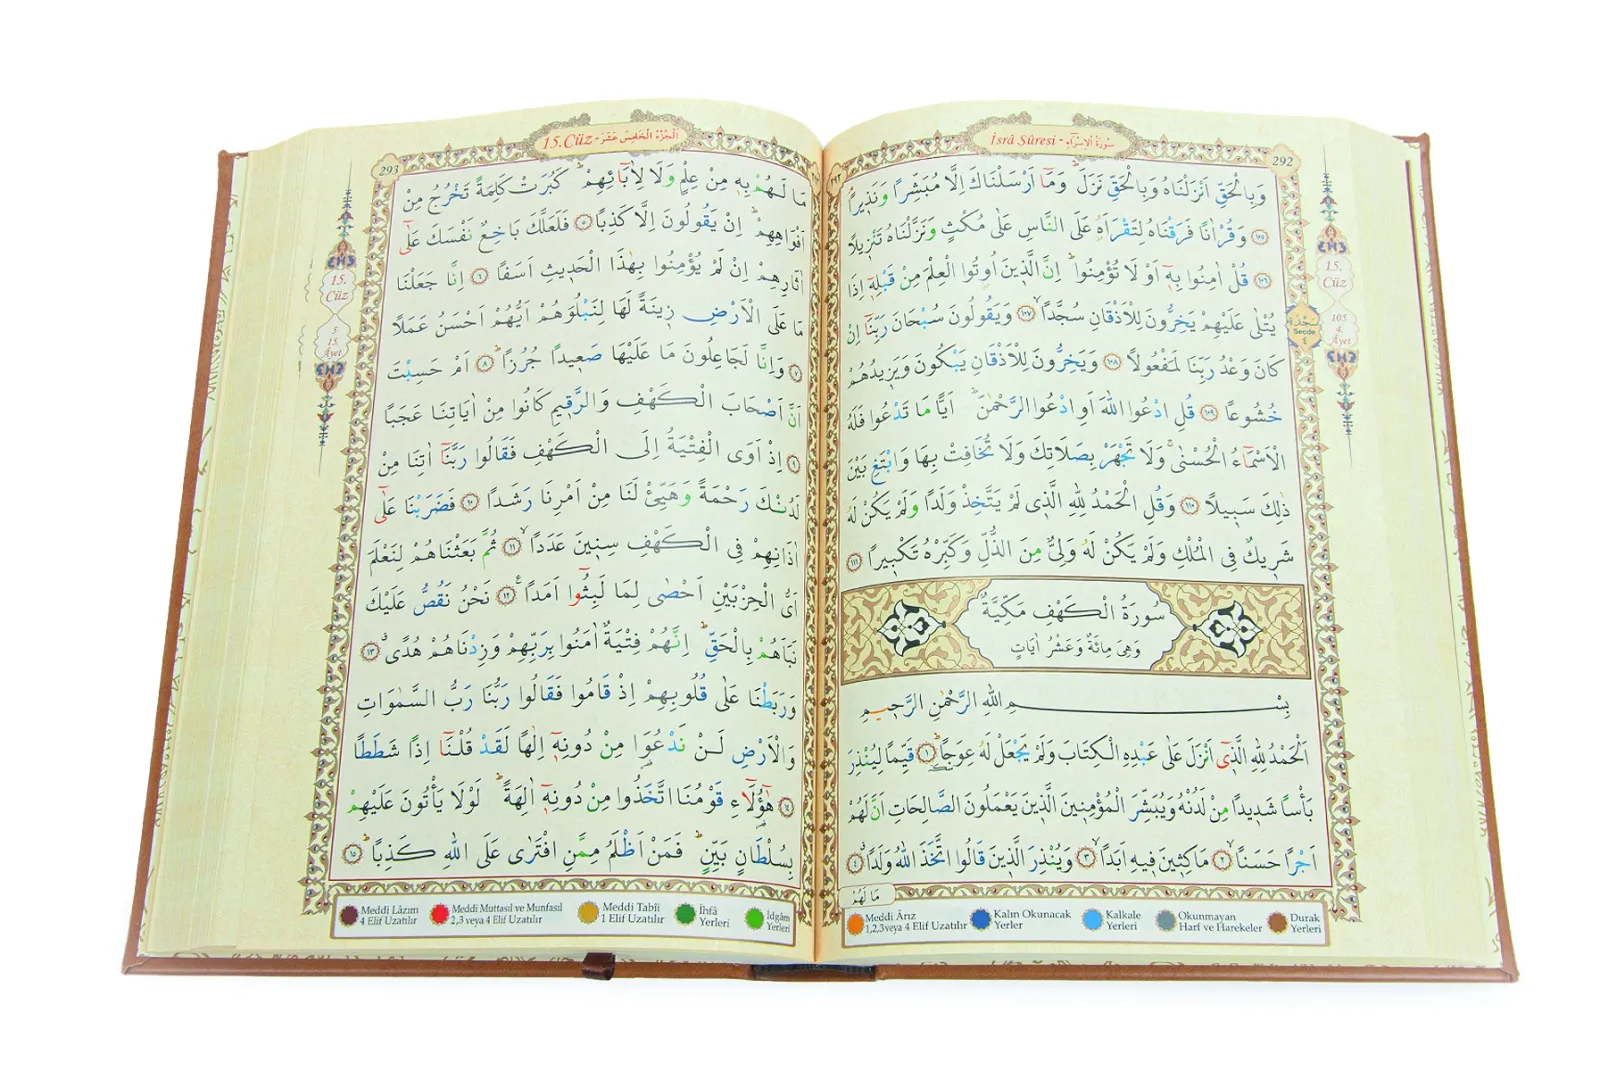 292
İsrâ Sûresi - سُورَةُ الْاِسْرَاءِ
وَبِالْحَقِّ اَنْزَلْنَاهُ وَبِالْحَقِّ نَزَلَۜ وَمَٓا اَرْسَلْنَاكَ اِلَّا مُبَشِّرًا وَنَذٖيرًا
﴿١٠٥﴾ وَقُرْاٰنًا فَرَقْنَاهُ لِتَقْرَاَهُ عَلَى النَّاسِ عَلٰى مُكْثٍ وَنَزَّلْنَاهُ تَنْزٖيلًا
﴿١٠٦﴾ قُلْ اٰمِنُوا بِهٖٓ اَوْ لَا تُؤْمِنُواۜ اِنَّ الَّذٖينَ اُوتُوا الْعِلْمَ مِنْ قَبْلِهٖٓ اِذَا
يُتْلٰى عَلَيْهِمْ يَخِرُّونَ لِلْاَذْقَانِ سُجَّدًاۙ ﴿١٠٧﴾ وَيَقُولُونَ سُبْحَانَ رَبِّنَٓا اِنْ
كَانَ وَعْدُ رَبِّنَا لَمَفْعُولًا ﴿١٠٨﴾ وَيَخِرُّونَ لِلْاَذْقَانِ يَبْكُونَ وَيَزٖيدُهُمْ
خُشُوعًا ﴿١٠٩﴾ قُلِ ادْعُوا اللّٰهَ اَوِ ادْعُوا الرَّحْمٰنَۜ اَيًّا مَا تَدْعُوا فَلَهُ
الْاَسْمَٓاءُ الْحُسْنٰىۚ وَلَا تَجْهَرْ بِصَلَاتِكَ وَلَا تُخَافِتْ بِهَا وَابْتَغِ بَيْنَ
ذٰلِكَ سَبٖيلًا ﴿١١٠﴾ وَقُلِ الْحَمْدُ لِلّٰهِ الَّذٖى لَمْ يَتَّخِذْ وَلَدًا وَلَمْ يَكُنْ لَهُ
شَرٖيكٌ فِى الْمُلْكِ وَلَمْ يَكُنْ لَهُ وَلِىٌّ مِنَ الذُّلِّ وَكَبِّرْهُ تَكْبٖيرًا ﴿١١١﴾
سُورَةُ الْكَهْفِ مَكِّيَّةٌ
وَهِىَ مِائَةٌ وَعَشْرُ اٰيَاتٍ
بِسْمِ اللّٰهِ الرَّحْمٰنِ الرَّحٖيمِ
اَلْحَمْدُ لِلّٰهِ الَّذٖٓى اَنْزَلَ عَلٰى عَبْدِهِ الْكِتَابَ وَلَمْ يَجْعَلْ لَهُ عِوَجًاۜ ﴿١﴾ قَيِّمًا لِيُنْذِرَ
بَأْسًا شَدٖيدًا مِنْ لَدُنْهُ وَيُبَشِّرَ الْمُؤْمِنٖينَ الَّذٖينَ يَعْمَلُونَ الصَّالِحَاتِ اَنَّ لَهُمْ
اَجْرًا حَسَنًاۙ ﴿٢﴾ مَاكِثٖينَ فٖيهِ اَبَدًاۙ ﴿٣﴾ وَيُنْذِرَ الَّذٖينَ قَالُوا اتَّخَذَ اللّٰهُ وَلَدًاۗ ﴿٤﴾
مَا لَهُمْ
15.
Cüz
105
4.
Âyet
سَجْدَة
Secde
٤
Meddi Ârız
1,2,3 veya 4 Elif Uzatılır
Kalın Okunacak
Yerler
Kalkale
Yerleri
Okunmayan
Harf ve Harekeler
Durak
Yerleri
293
15.Cüz - اَلْجُزْءُ الْخَامِسَ عَشَرَ
مَا لَهُمْ بِهٖ مِنْ عِلْمٍ وَلَا لِاٰبَٓائِهِمْۜ كَبُرَتْ كَلِمَةً تَخْرُجُ مِنْ
اَفْوَاهِهِمْۜ اِنْ يَقُولُونَ اِلَّا كَذِبًا ﴿٥﴾ فَلَعَلَّكَ بَاخِعٌ نَفْسَكَ عَلٰٓى
اٰثَارِهِمْ اِنْ لَمْ يُؤْمِنُوا بِهٰذَا الْحَدٖيثِ اَسَفًا ﴿٦﴾ اِنَّا جَعَلْنَا
مَا عَلَى الْاَرْضِ زٖينَةً لَهَا لِنَبْلُوَهُمْ اَيُّهُمْ اَحْسَنُ عَمَلًا
﴿٧﴾ وَاِنَّا لَجَاعِلُونَ مَا عَلَيْهَا صَعٖيدًا جُرُزًاۜ ﴿٨﴾ اَمْ حَسِبْتَ
اَنَّ اَصْحَابَ الْكَهْفِ وَالرَّقٖيمِ كَانُوا مِنْ اٰيَاتِنَا عَجَبًا
﴿٩﴾ اِذْ اَوَى الْفِتْيَةُ اِلَى الْكَهْفِ فَقَالُوا رَبَّنَٓا اٰتِنَا مِنْ
لَدُنْكَ رَحْمَةً وَهَيِّئْ لَنَا مِنْ اَمْرِنَا رَشَدًا ﴿١٠﴾ فَضَرَبْنَا عَلٰٓى
اٰذَانِهِمْ فِى الْكَهْفِ سِنٖينَ عَدَدًاۙ ﴿١١﴾ ثُمَّ بَعَثْنَاهُمْ لِنَعْلَمَ
اَىُّ الْحِزْبَيْنِ اَحْصٰى لِمَا لَبِثُٓوا اَمَدًاࣖ ﴿١٢﴾ نَحْنُ نَقُصُّ عَلَيْكَ
نَبَاَهُمْ بِالْحَقِّۜ اِنَّهُمْ فِتْيَةٌ اٰمَنُوا بِرَبِّهِمْ وَزِدْنَاهُمْ هُدًىۗ ﴿١٣﴾
وَرَبَطْنَا عَلٰى قُلُوبِهِمْ اِذْ قَامُوا فَقَالُوا رَبُّنَا رَبُّ السَّمٰوَاتِ
وَالْاَرْضِ لَنْ نَدْعُوَا مِنْ دُونِهٖٓ اِلٰهًا لَقَدْ قُلْنَٓا اِذًا شَطَطًا
﴿١٤﴾ هٰٓؤُلَٓاءِ قَوْمُنَا اتَّخَذُوا مِنْ دُونِهٖٓ اٰلِهَةًۜ لَوْلَا يَأْتُونَ عَلَيْهِمْ
بِسُلْطَانٍ بَيِّنٍۜ فَمَنْ اَظْلَمُ مِمَّنِ افْتَرٰى عَلَى اللّٰهِ كَذِبًاۜ ﴿١٥﴾
15.
Cüz
5
15.
Âyet
Meddi Lâzım
4 Elif Uzatılır
Meddi Muttasıl ve Munfasıl
2,3 veya 4 Elif Uzatılır
Meddi Tabîî
1 Elif Uzatılır
İhfâ
Yerleri
İdgâm
Yerleri